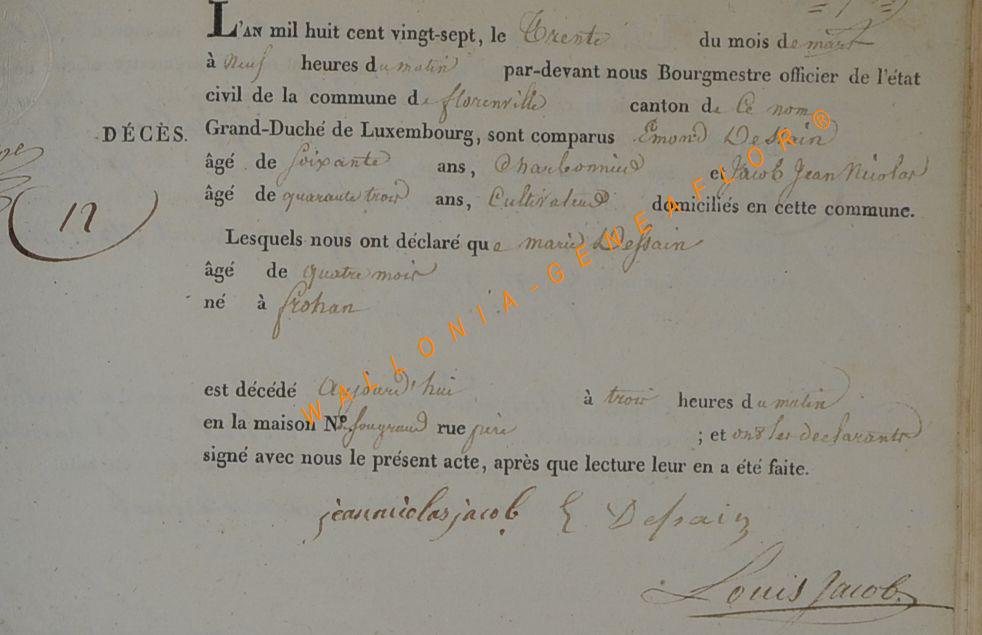 L'AN mil huit cent vingt-sept, le Trente du mois de mars
à neuf heures du matin par-devant nous Bourgmestre officier de l'état
civil de la commune de florenville canton de Ce nom
DÉCÈS.
Grand-Duché de Luxembourg, sont comparus Emond Dessain
âgé de soixante ans, Charbonnier et Jacob Jean Nicolas
âgé de quarante trois ans, Cultivateur domiciliés en cette commune.
12
Lesquels nous ont déclaré que marie Dessain
âgé de quatre mois
né à frohan
est décédé aujourd'hui à trois heures du matin
en la maison No. sougrand rue père ; et ont les declarants
signé avec nous le présent acte, après que lecture leur en a été faite.
jeannicolasjacob E Dessain
Louis Jacob
WALLONIA-GENEAFLOR®